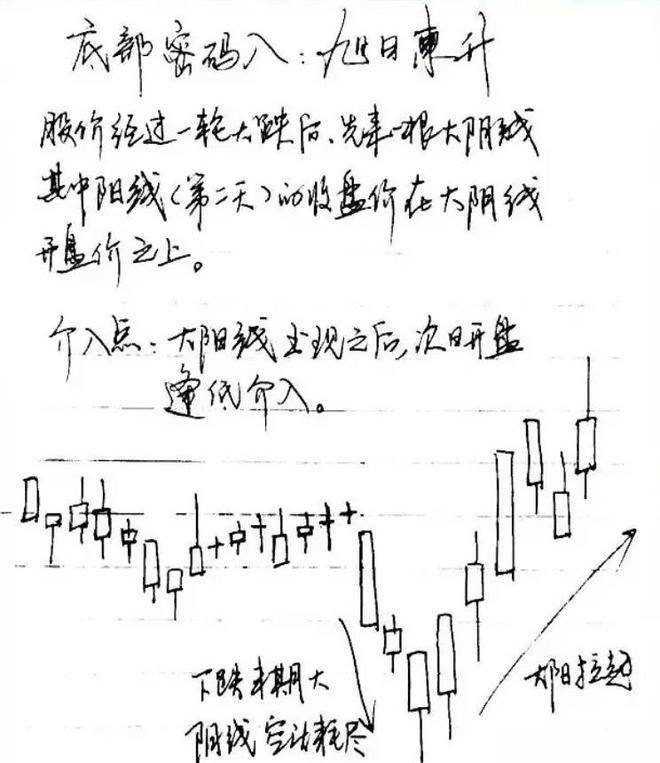 底部密码八：旭日東升
股价经过一轮大跌后、先来一根大阴线
其中阳线（第二天）的收盘价在大阴线
开盘价之上。
介入点：大阳线出现之后,次日开盘
逢低介入。
下跌末期大
阴线空头耗尽
大阳拉起